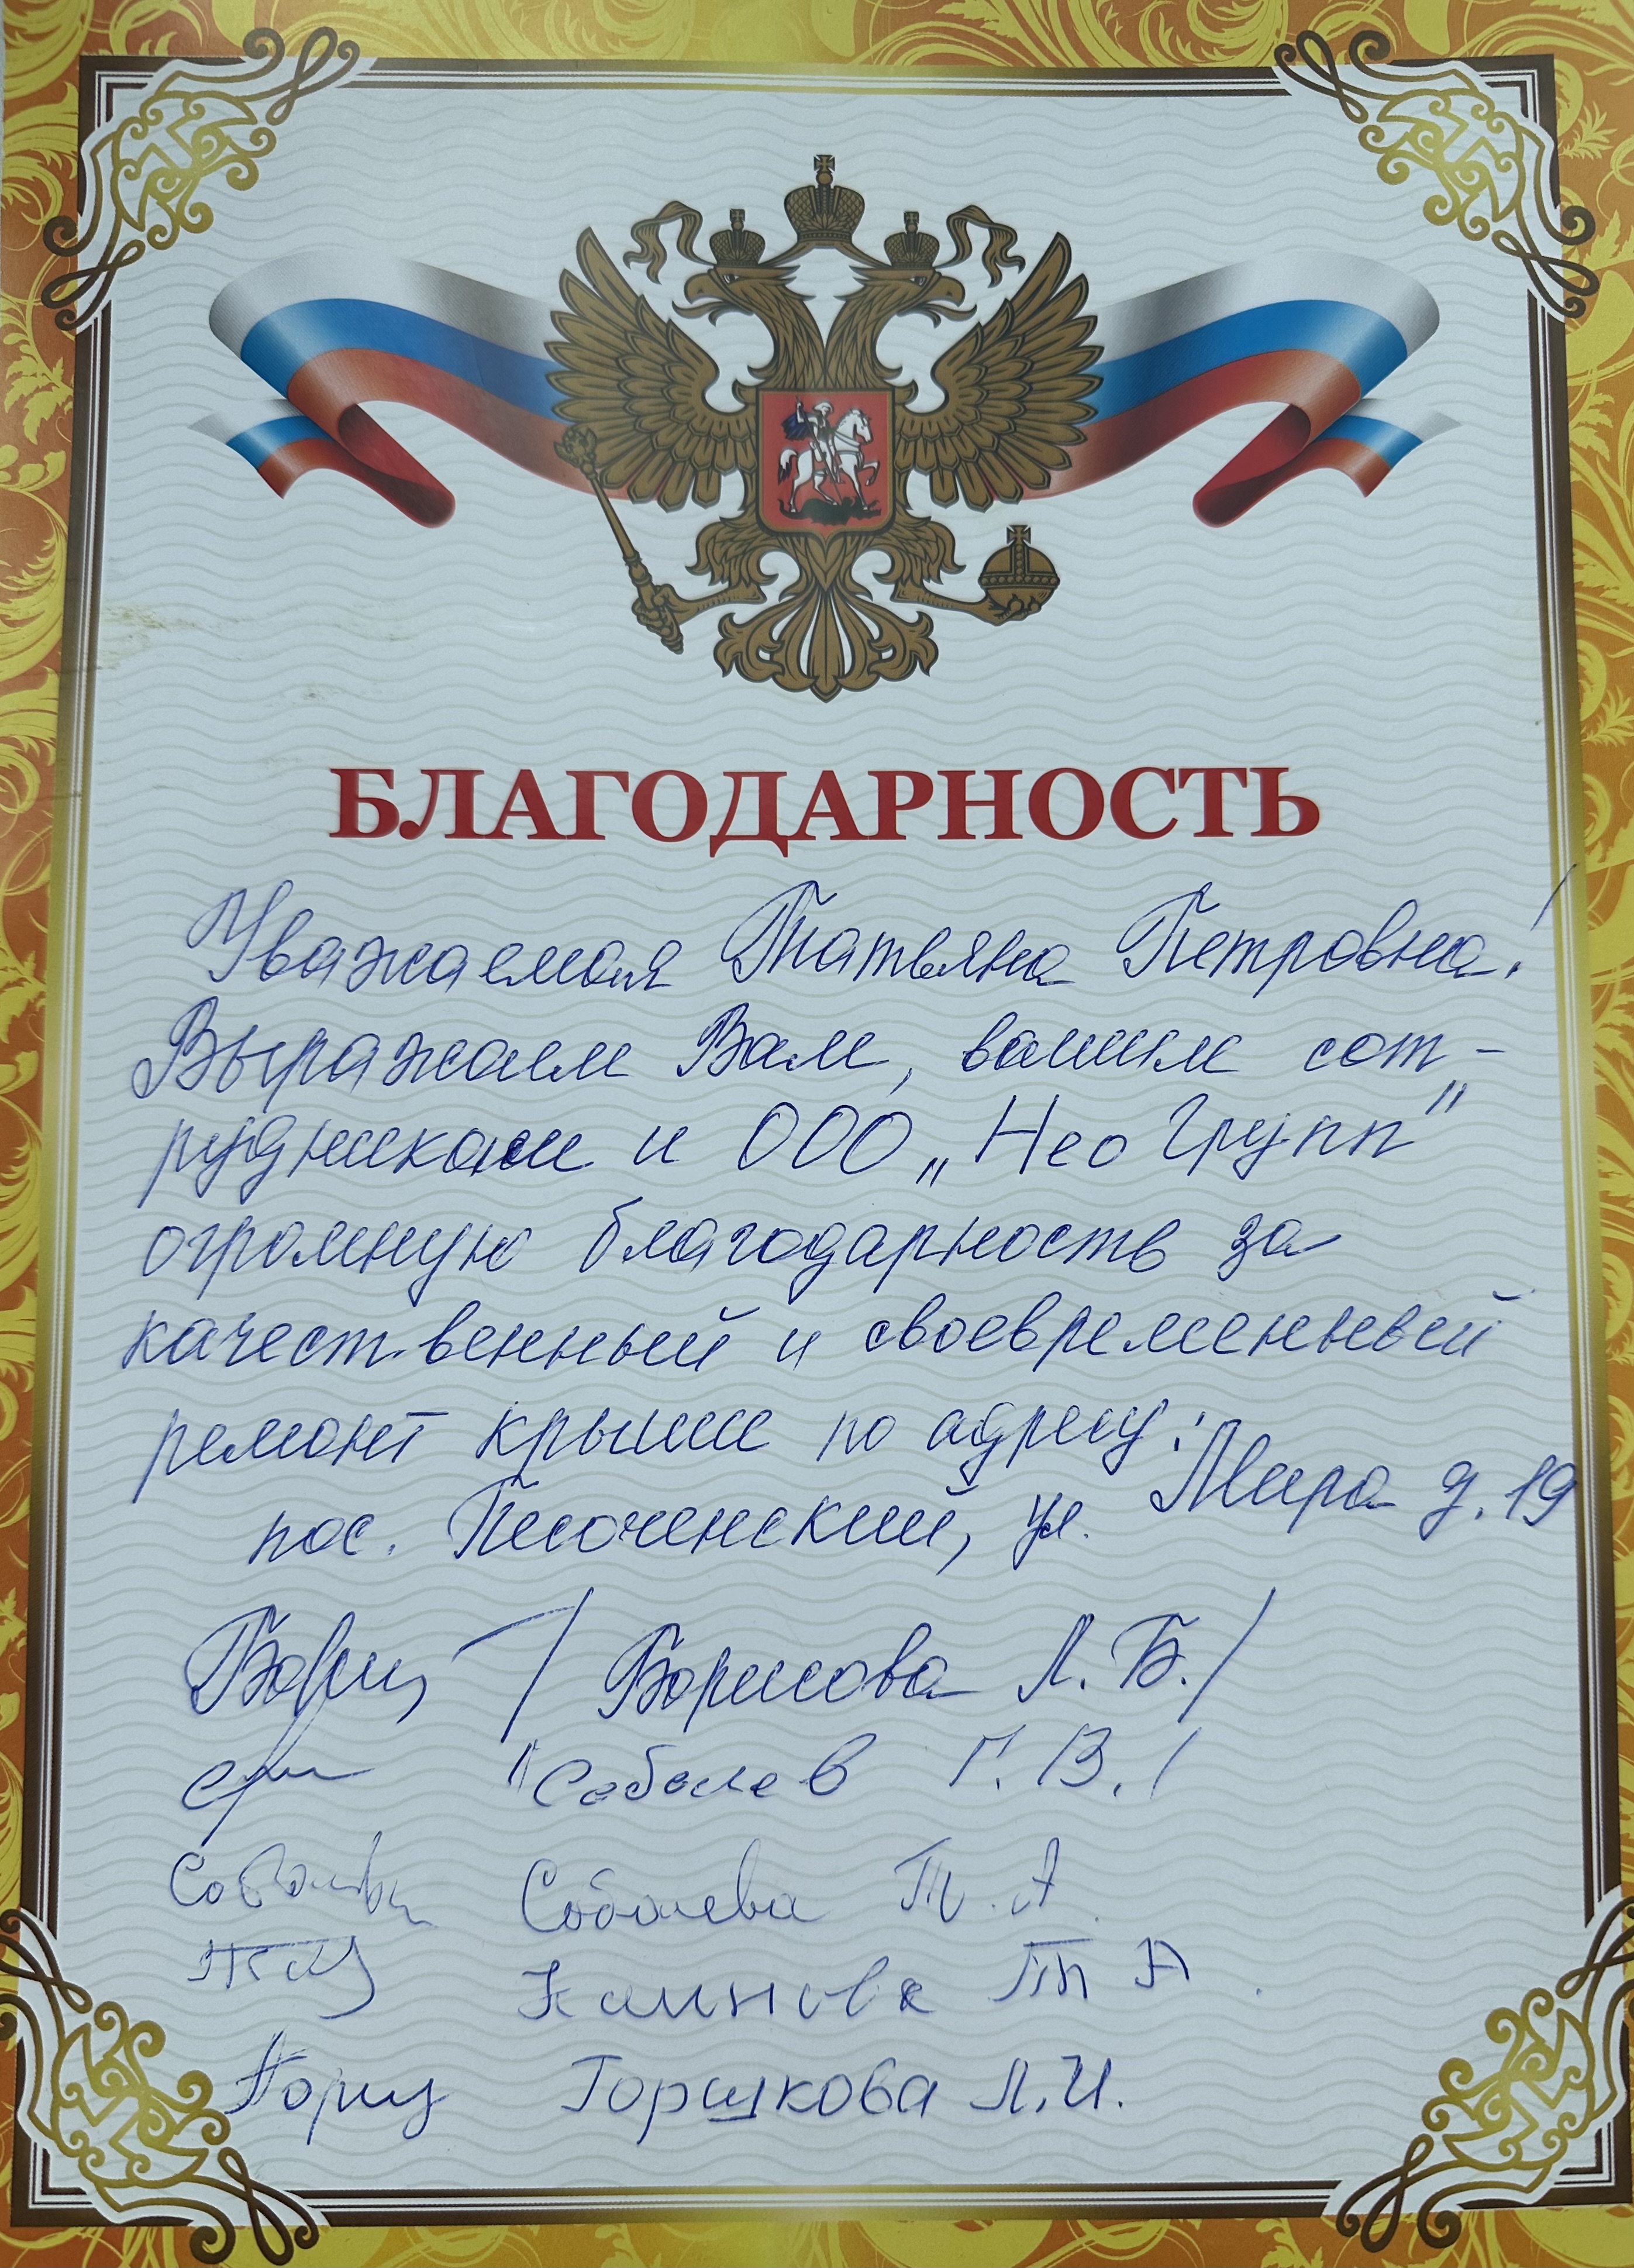 БЛАГОДАРНОСТЬ
Уважаемая Татьяна Петровна!
Выражаем Вам, вашим сот-
рудникам и ООО „Нео Групп"
огромную благодарность за
качественный и своевременный
ремонт крыши по адресу:
пос. Песоченский, ул. Мира д. 19
/ Борисова Л. Б. /
Соболев Г. В. /
Соболева Т. А.
Т А
Горшкова Л. И.